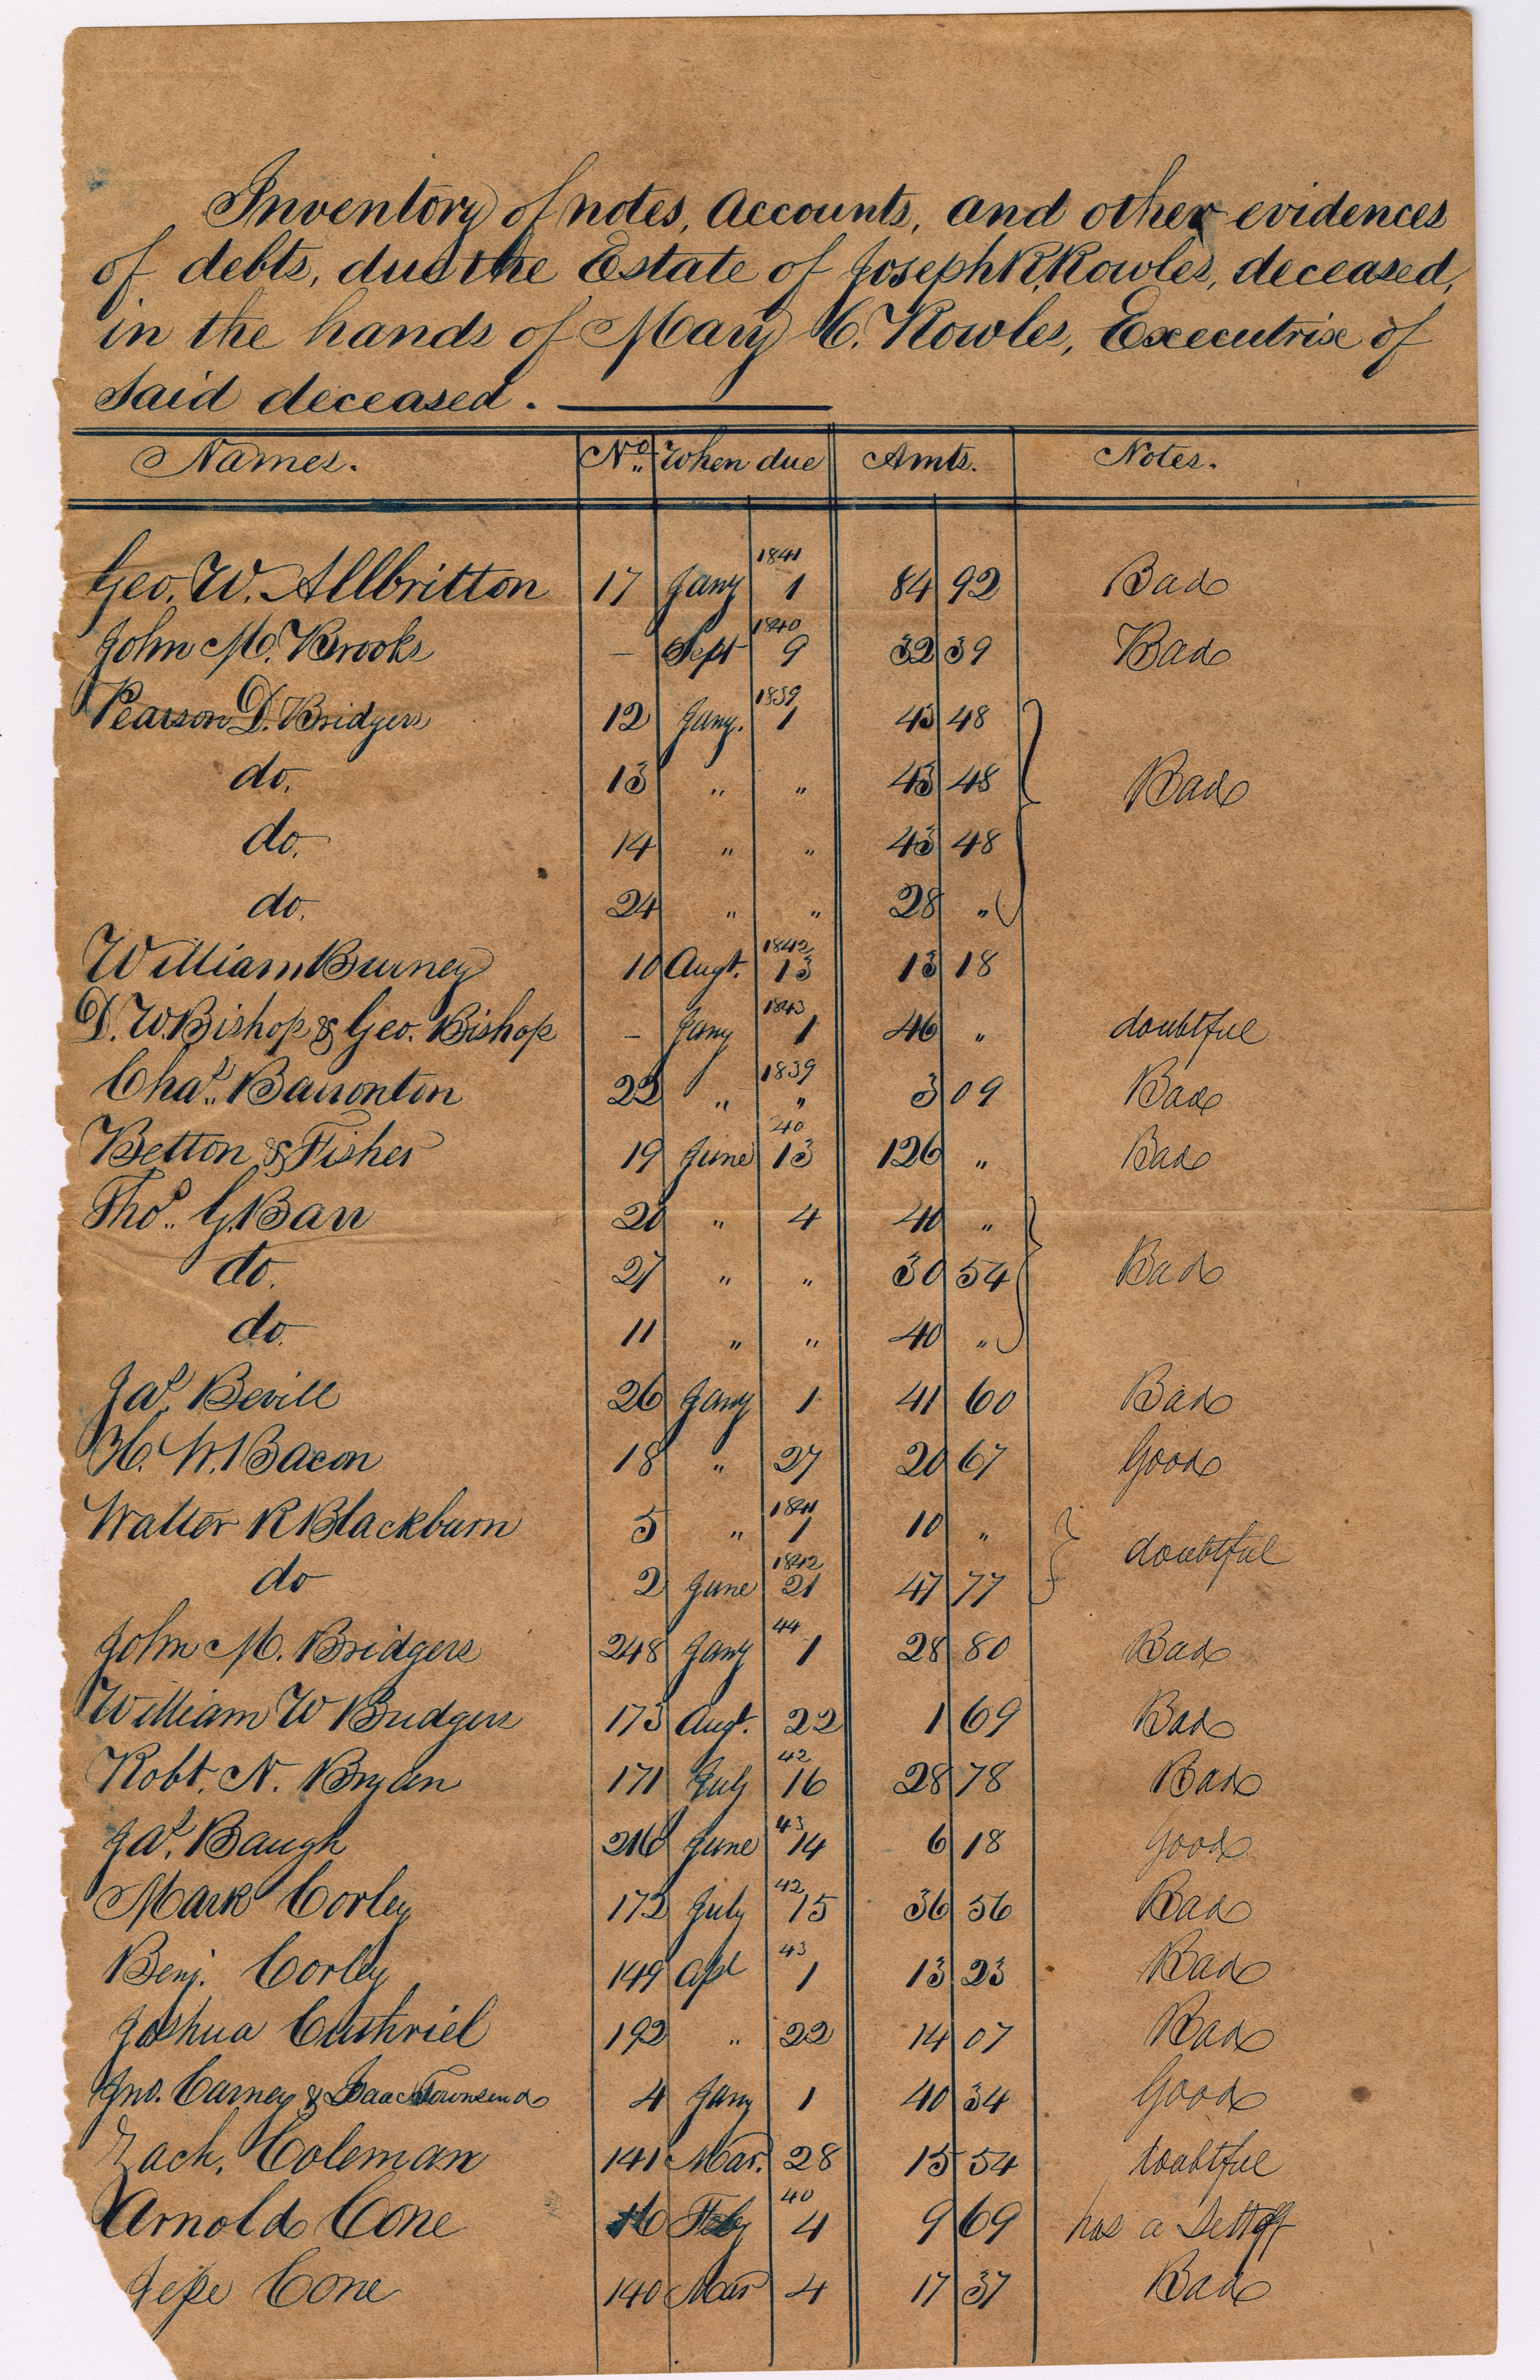 Inventory of notes, accounts, and other evidences
of debts, due the Estate of Joseph R. Rowles, deceased,
in the hands of Mary C. Rowles, Executrix of
said deceased.
Names. No. When due Amts. Notes.
Geo. W. Allbritton 17 Jany 1841 1 84 92 Bad
John M. Brooks – Sept 1840 9 32 39 Bad
Pearson D. Bridgers 12 Jany. 1839 1 43 48
do. 13 " " 43 48 Bad
do. 14 " " 43 48
do. 24 " " 28 "
William Burney 10 Augt. 1842 13 13 18
D. W. Bishop & Geo. Bishop – Jany 1843 1 46 " doubtful
Chas. Barronton 22 " 1839 " 3 09 Bad
Betton & Fisher 19 June 40 13 126 " Bad
Thos. G. Barr 20 " 4 40 "
do. 27 " " 30 54 Bad
do. 11 " " 40 "
Jas. Bevill 26 Jany 1 41 60 Bad
H. W. Bacon 18 " 27 20 67 Good
Walter R Blackburn 5 " 1841 1 10 "
do 2 June 1842 21 47 77 doubtful
John M. Bridgers 248 Jany 44 1 28 80 Bad
William W Bridgers 173 Augt. 22 1 69 Bad
Robt. N. Bryan 171 July 42 16 28 78 Bad
Jas. Baugh 216 June 43 14 6 18 Good
Mark Corley 172 July 42 15 36 56 Bad
Benj. Corley 149 Apl 43 1 13 23 Bad
Joshua Cuthriel 192 " 22 14 07 Bad
Jno. Carney & Isaac Townsend 4 Jany 1 40 34 Good
Zach. Coleman 141 Mar. 28 15 54 doubtful
Arnold Cone 16 Feby 40 4 9 69 has a Settoff
Jesse Cone 140 Mar 4 17 37 Bad